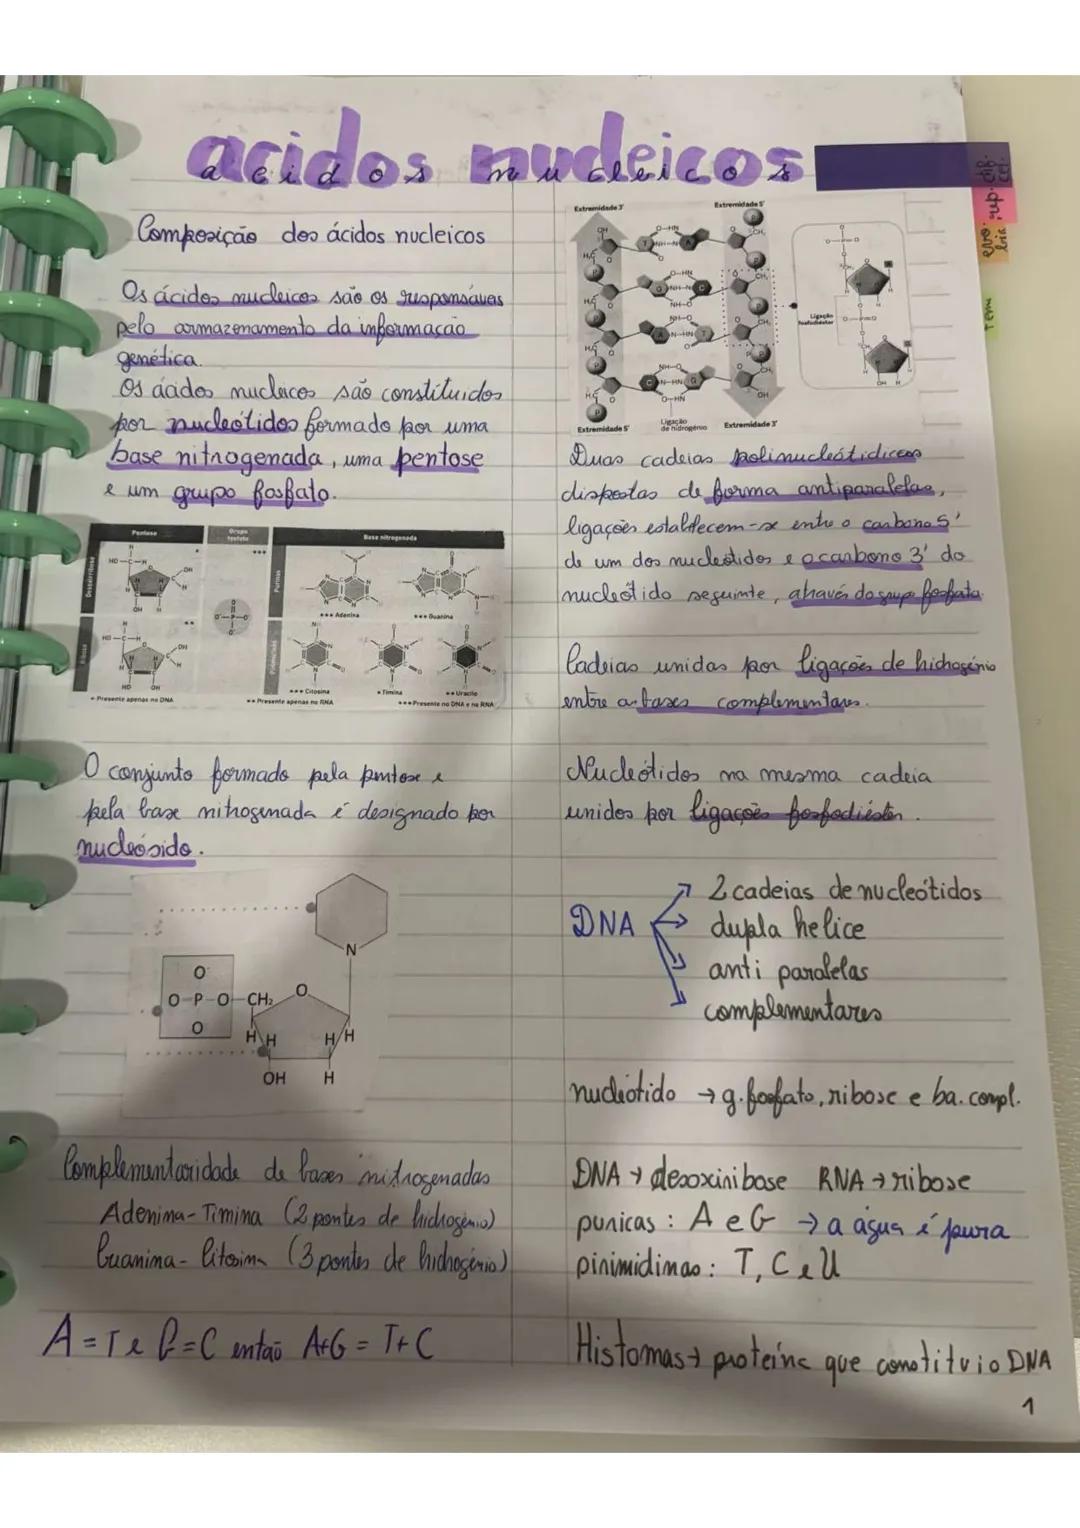 acidos nucleicos
acidos nucleicos
Composição dos ácidos nucleicos
Os ácidos nucleicos são os responsáveis
pelo armazenamento da informação
genética.
Os ácidos nucleicos são constituidos
por nucleótidos formado por uma
base nitrogenada, uma pentose
e um grupo fosfato.
Pentose
Grupo fosfato
Base nitrogenada
Desoxirribose
Ribose
Purinas
*** Adenina
*** Guanina
*** Citosina
* Timina
** Uracilo
* Presente apenas no DNA
** Presente apenas no RNA
*** Presente no DNA e no RNA
O conjunto formado pela pentose e
pela base nitrogenada é designado por
nucleósido.
N
O⁻
O-P-O-CH₂
O
O
H H
H H
OH H
Complementaridade de bases nitrogenadas
Adenina-Timina (2 pontes de hidrogénio)
Guanina-Citosina (3 pontes de hidrogénio)
A=T e G=C então A+G = T+C
Extremidade 3'
Extremidade 5'
Ligação
fosfodiéster
Extremidade 5'
Ligação
de hidrogénio
Extremidade 3'
Duas cadeias polinucleótidicas
dispostas de forma antiparalelas,
ligações estabelecem-se entre o carbono 5'
de um dos nucleótidos e o carbono 3' do
nucleótido seguinte, através do grupo fosfato.
Cadeias unidas por ligações de hidrogénio
entre as bases complementares.
Nucleótidos na mesma cadeia
unidos por ligações fosfodiéster.
DNA
2 cadeias de nucleótidos
dupla helice
anti paralelas
complementares
nucleótido → g. fosfato, ribose e ba. compl.
DNA → desoxiribose RNA → ribose
puricas : A e G → a água é pura
pirimidinas : T, C e U
Histomas → proteína que constitui o DNA
1